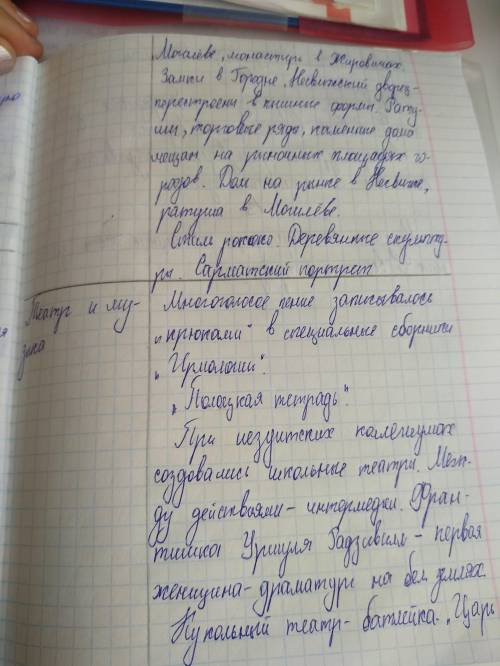 Могилёве, монастырь в Жировичах.
Замки в Городне, Несвижский дворец-
перестроены в пышные формы. Рату-
ши, торговые ряды, каменные дома
мещан на рыночных площадях го-
родов. Дом на рынке в Несвиже,
ратуша в Могилёве.
Стиль рококо. Деревянные скульпту-
ры. Сарматский портрет
Театр и му-
зыка
Многоголосое пение записывалось
„крюками" в специальные сборники
„Ирмологии".
„Полоцкая тетрадь".
При иезуитских коллегиумах
создавались школьные театры. Меж-
ду действиями - интермедии. Фран-
тишка Уршуля Радзивилл - первая
женщина-драматург на бел. землях
Кукольный театр - батлейка. „Царь